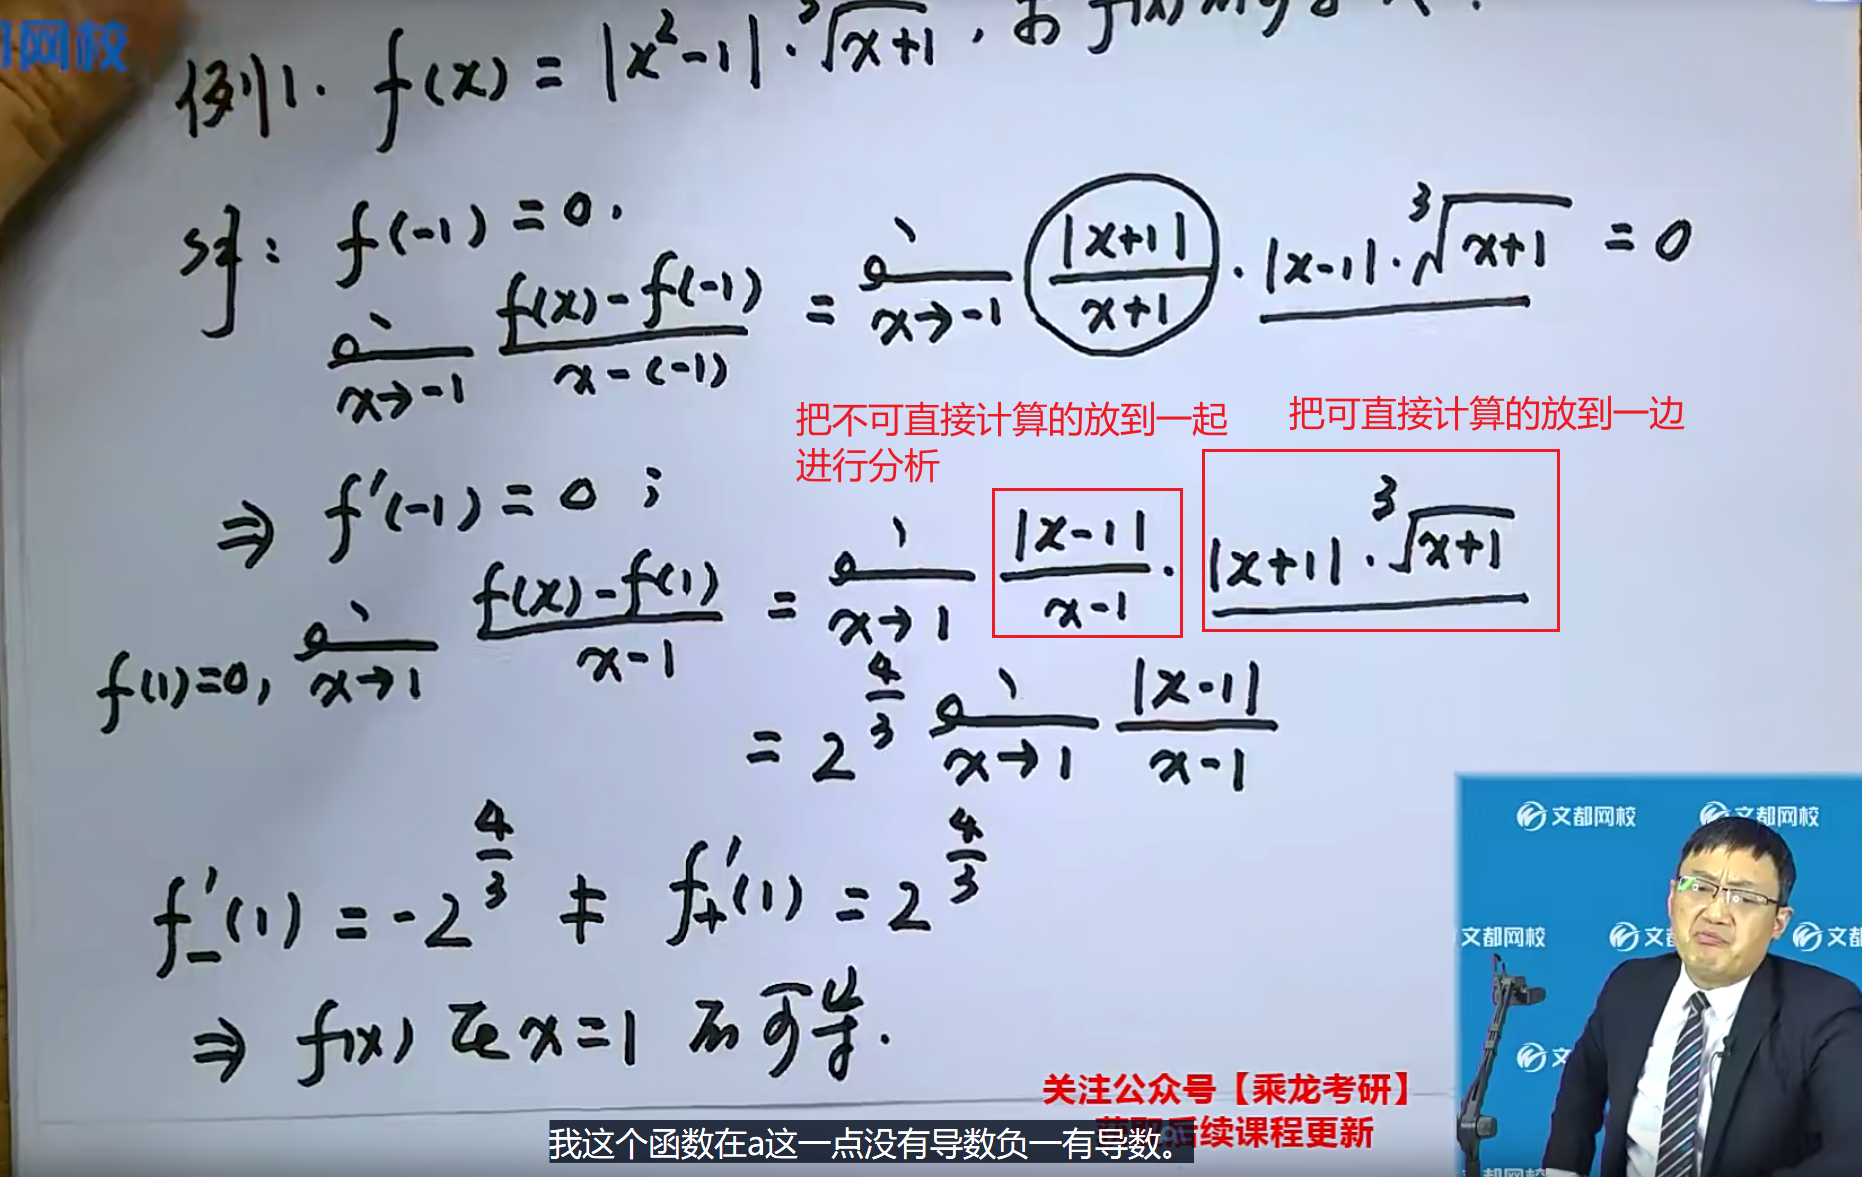 都网校
例1. f(x) = |x²-1|·∛x+1,
解: f(-1) = 0.
lim x→-1 f(x)-f(-1) / x-(-1) = lim x→-1 |x+1| / x+1 · |x-1|·∛x+1 = 0
把不可直接计算的放到一起
进行分析
把可直接计算的放到一边
⇒ f'(-1) = 0 ;
f(1)=0, lim x→1 f(x)-f(1) / x-1 = lim x→1 |x-1| / x-1 · |x+1|·∛x+1
= 2^4/3 lim x→1 |x-1| / x-1
f'₋(1) = -2^4/3 ≠ f'₊(1) = 2^4/3
⇒ f(x) 在 x=1 不可导.
文都网校 文都网校
文都网校 文都 文都
文都网校
关注公众号【乘龙考研】
后续课程更新
我这个函数在a这一点没有导数负一有导数。